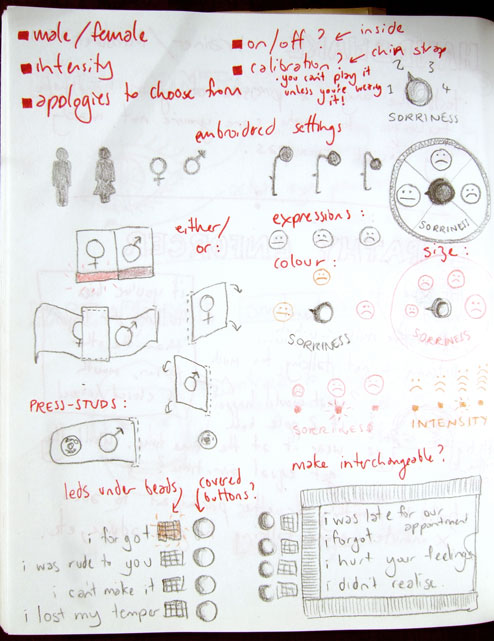 male/female
intensity
apologies to choose from
on/off? ← inside
calibration? ← chin strap
you can't play it
unless you're wearing
it!
1 2 3 4
SORRINESS
embroidred settings
SORRINESS
either/
or:
expressions:
colour:
SORRINESS
size:
SORRINESS
PRESS-STUDS:
SORRINESS
INTENSITY
make interchangeable?
leds under beads,
covered
buttons?
i forgot
i was rude to you
i can't make it
i lost my temper
i was late for our
appointment
i forgot
i hurt your feelings
i didn't realise.